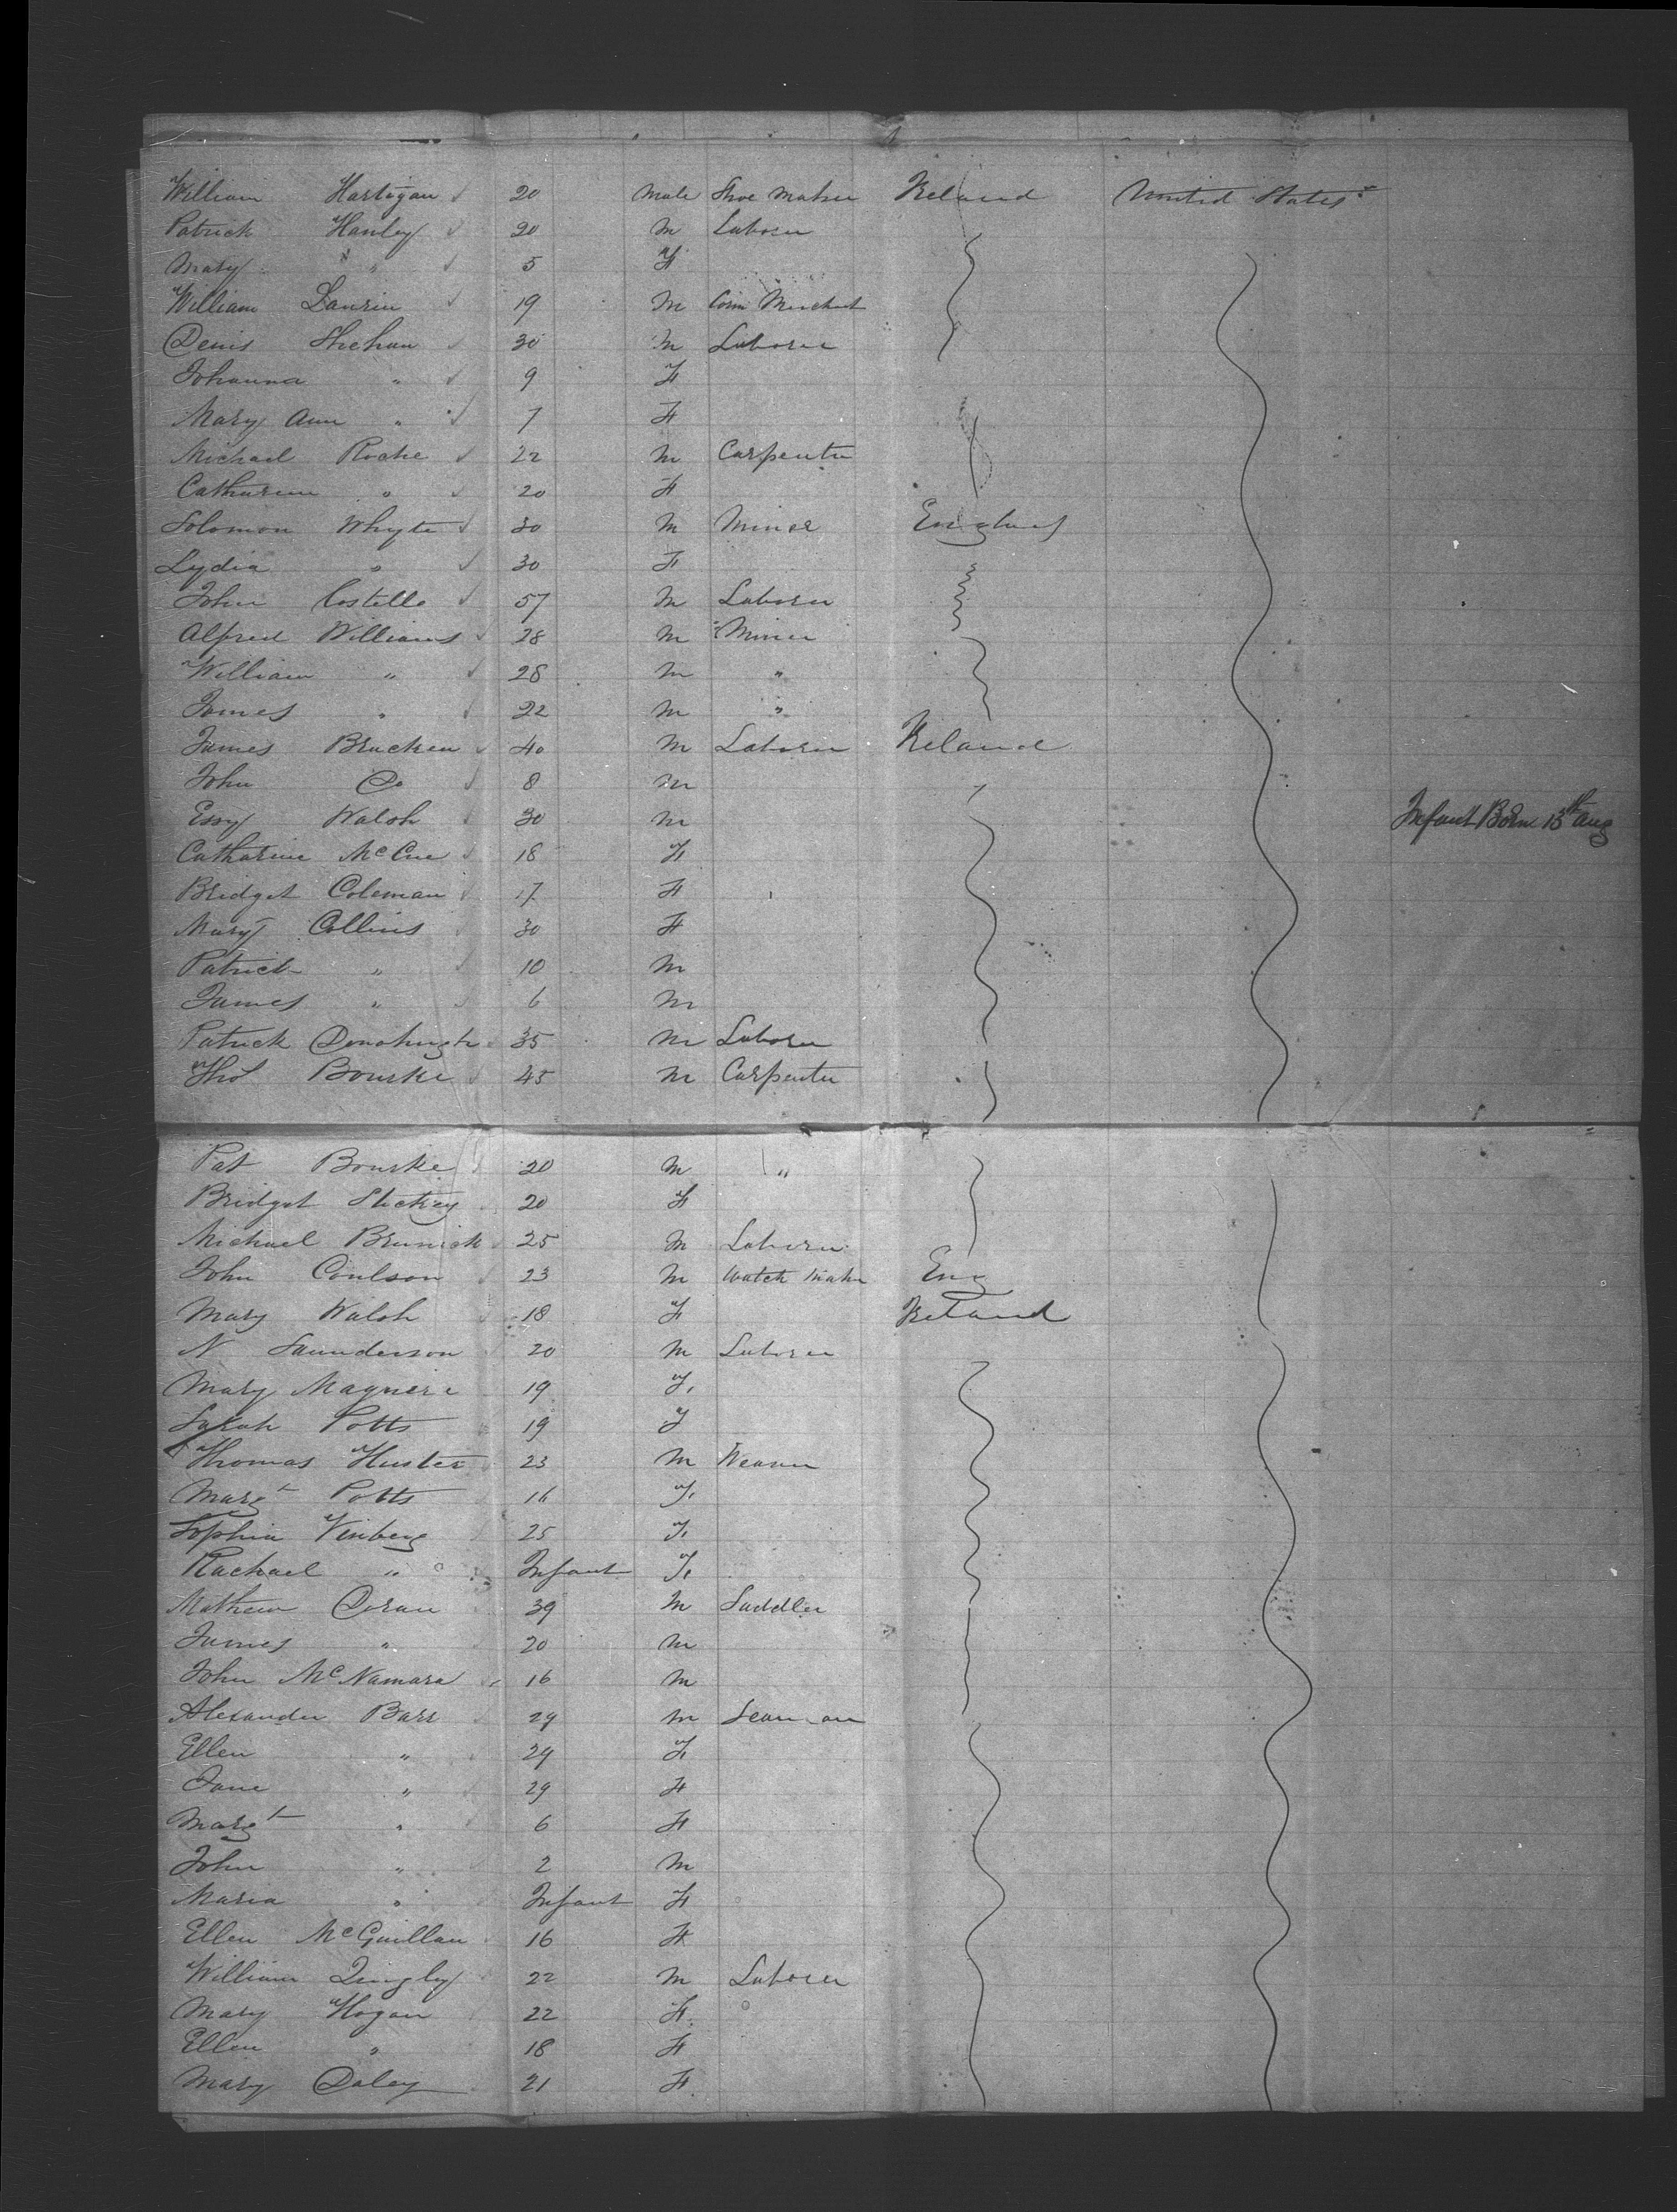 William Hartigan 20 Male Shoe Maker Ireland United States
Patrick Hanley 20 M Laborer
Mary " 5 F
William 19 M Corn Merchant
Denis Shehan 30 M Laborer
Johanna " 9 F
Mary Ann " 7 F
Michael Roche 22 M Carpenter
Catharine " 20 F
Solomon Whyte 30 M Miner England
Lydia " 30 F
John Costello 57 M Laborer
Alfred Williams 28 M Miner
William " 28 M "
James " 22 M "
James Bracken 40 M Laborer Ireland
John Do 8 M
Essy Walsh 30 M Infant Born 13th Aug
Catharine McCue 18 F
Bridget Coleman 17 F
Mary Collins 30 F
Patrick " 10 M
James " 6 M
Patrick 35 M Laborer
Thos Bourke 45 M Carpenter
Pat Bourke 20 M "
Bridget 20 F
Michael 25 M Laborer
John Coulson 23 M Watch Maker Eng
Mary Walsh 18 F Ireland
N Saunderson 20 M Laborer
Mary Maguere 19 F
Sarah Potts 19 F
Thomas Huster 23 M Weaver
Margt Potts 16 F
Sophia Vinberg 25 F
Rachael " Infant F
Mathew Doran 39 M Saddler
James " 20 M
John McNamara 16 M
Alexander Barr 29 M Seaman
Ellen " 29 F
Jane " 29 F
Margt " 6 F
John " 2 M
Maria " Infant F
Ellen McQuillan 16 F
William Quigley 22 M Laborer
Mary Hogan 22 F
Ellen " 18 F
Mary Daley 21 F